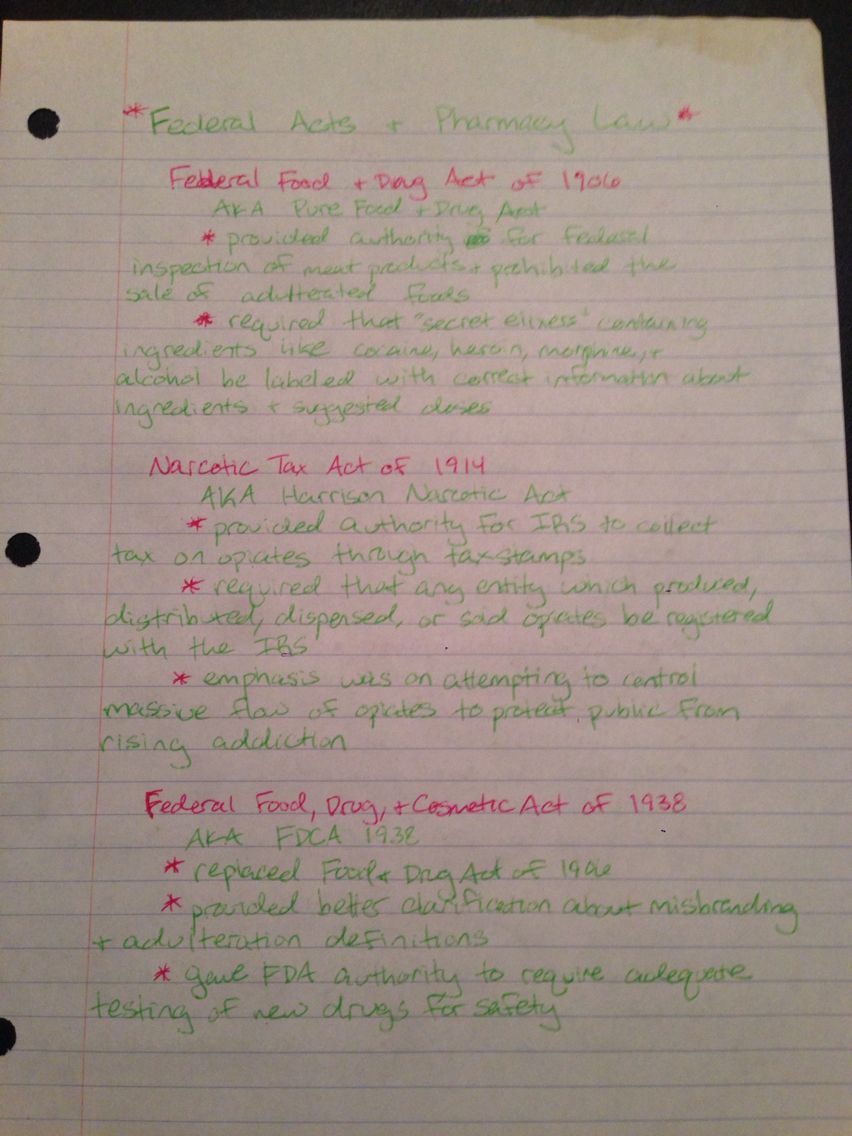 *Federal Acts + Pharmacy Law*
Federal Food + Drug Act of 1906
AKA Pure Food + Drug Act
* provided authority for federal
inspection of meat products + prohibited the
sale of adulterated foods
* required that "secret elixers" containing
ingredients like cocaine, heroin, morphine, +
alcohol be labeled with correct information about
ingredients + suggested doses
Narcotic Tax Act of 1914
AKA Harrison Narcotic Act
* provided authority for IRS to collect
tax on opiates through tax stamps
* required that any entity which produced,
distributed, dispensed, or sold opiates be registered
with the IRS
* emphasis was on attempting to control
massive flow of opiates to protect public from
rising addiction
Federal Food, Drug, + Cosmetic Act of 1938
AKA FDCA 1938
* replaced Food + Drug Act of 1906
* provided better clarification about misbranding
+ adulteration definitions
* gave FDA authority to require adequate
testing of new drugs for safety